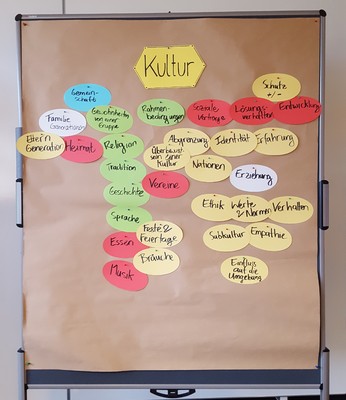 Kultur
Schutz
+/-
Gemein-
schaft
Gewohnheiten
von einer
Gruppe
Rahmen-
bedingungen
Soziale
Verträge
Lösungs-
verhalten
Entwicklung
Familie
Eltern
Generation
Heimat
Religion
Abgrenzung
Identität
Erfahrung
Tradition
Kultur
Nationen
Vereine
Erziehung
Geschichte
Sprache
Ethik
Werte
& Normen
Verhalten
Essen
Feste &
Feiertage
Subkultur
Empathie
Bräuche
Musik
Einfluss
auf die
Umgebung